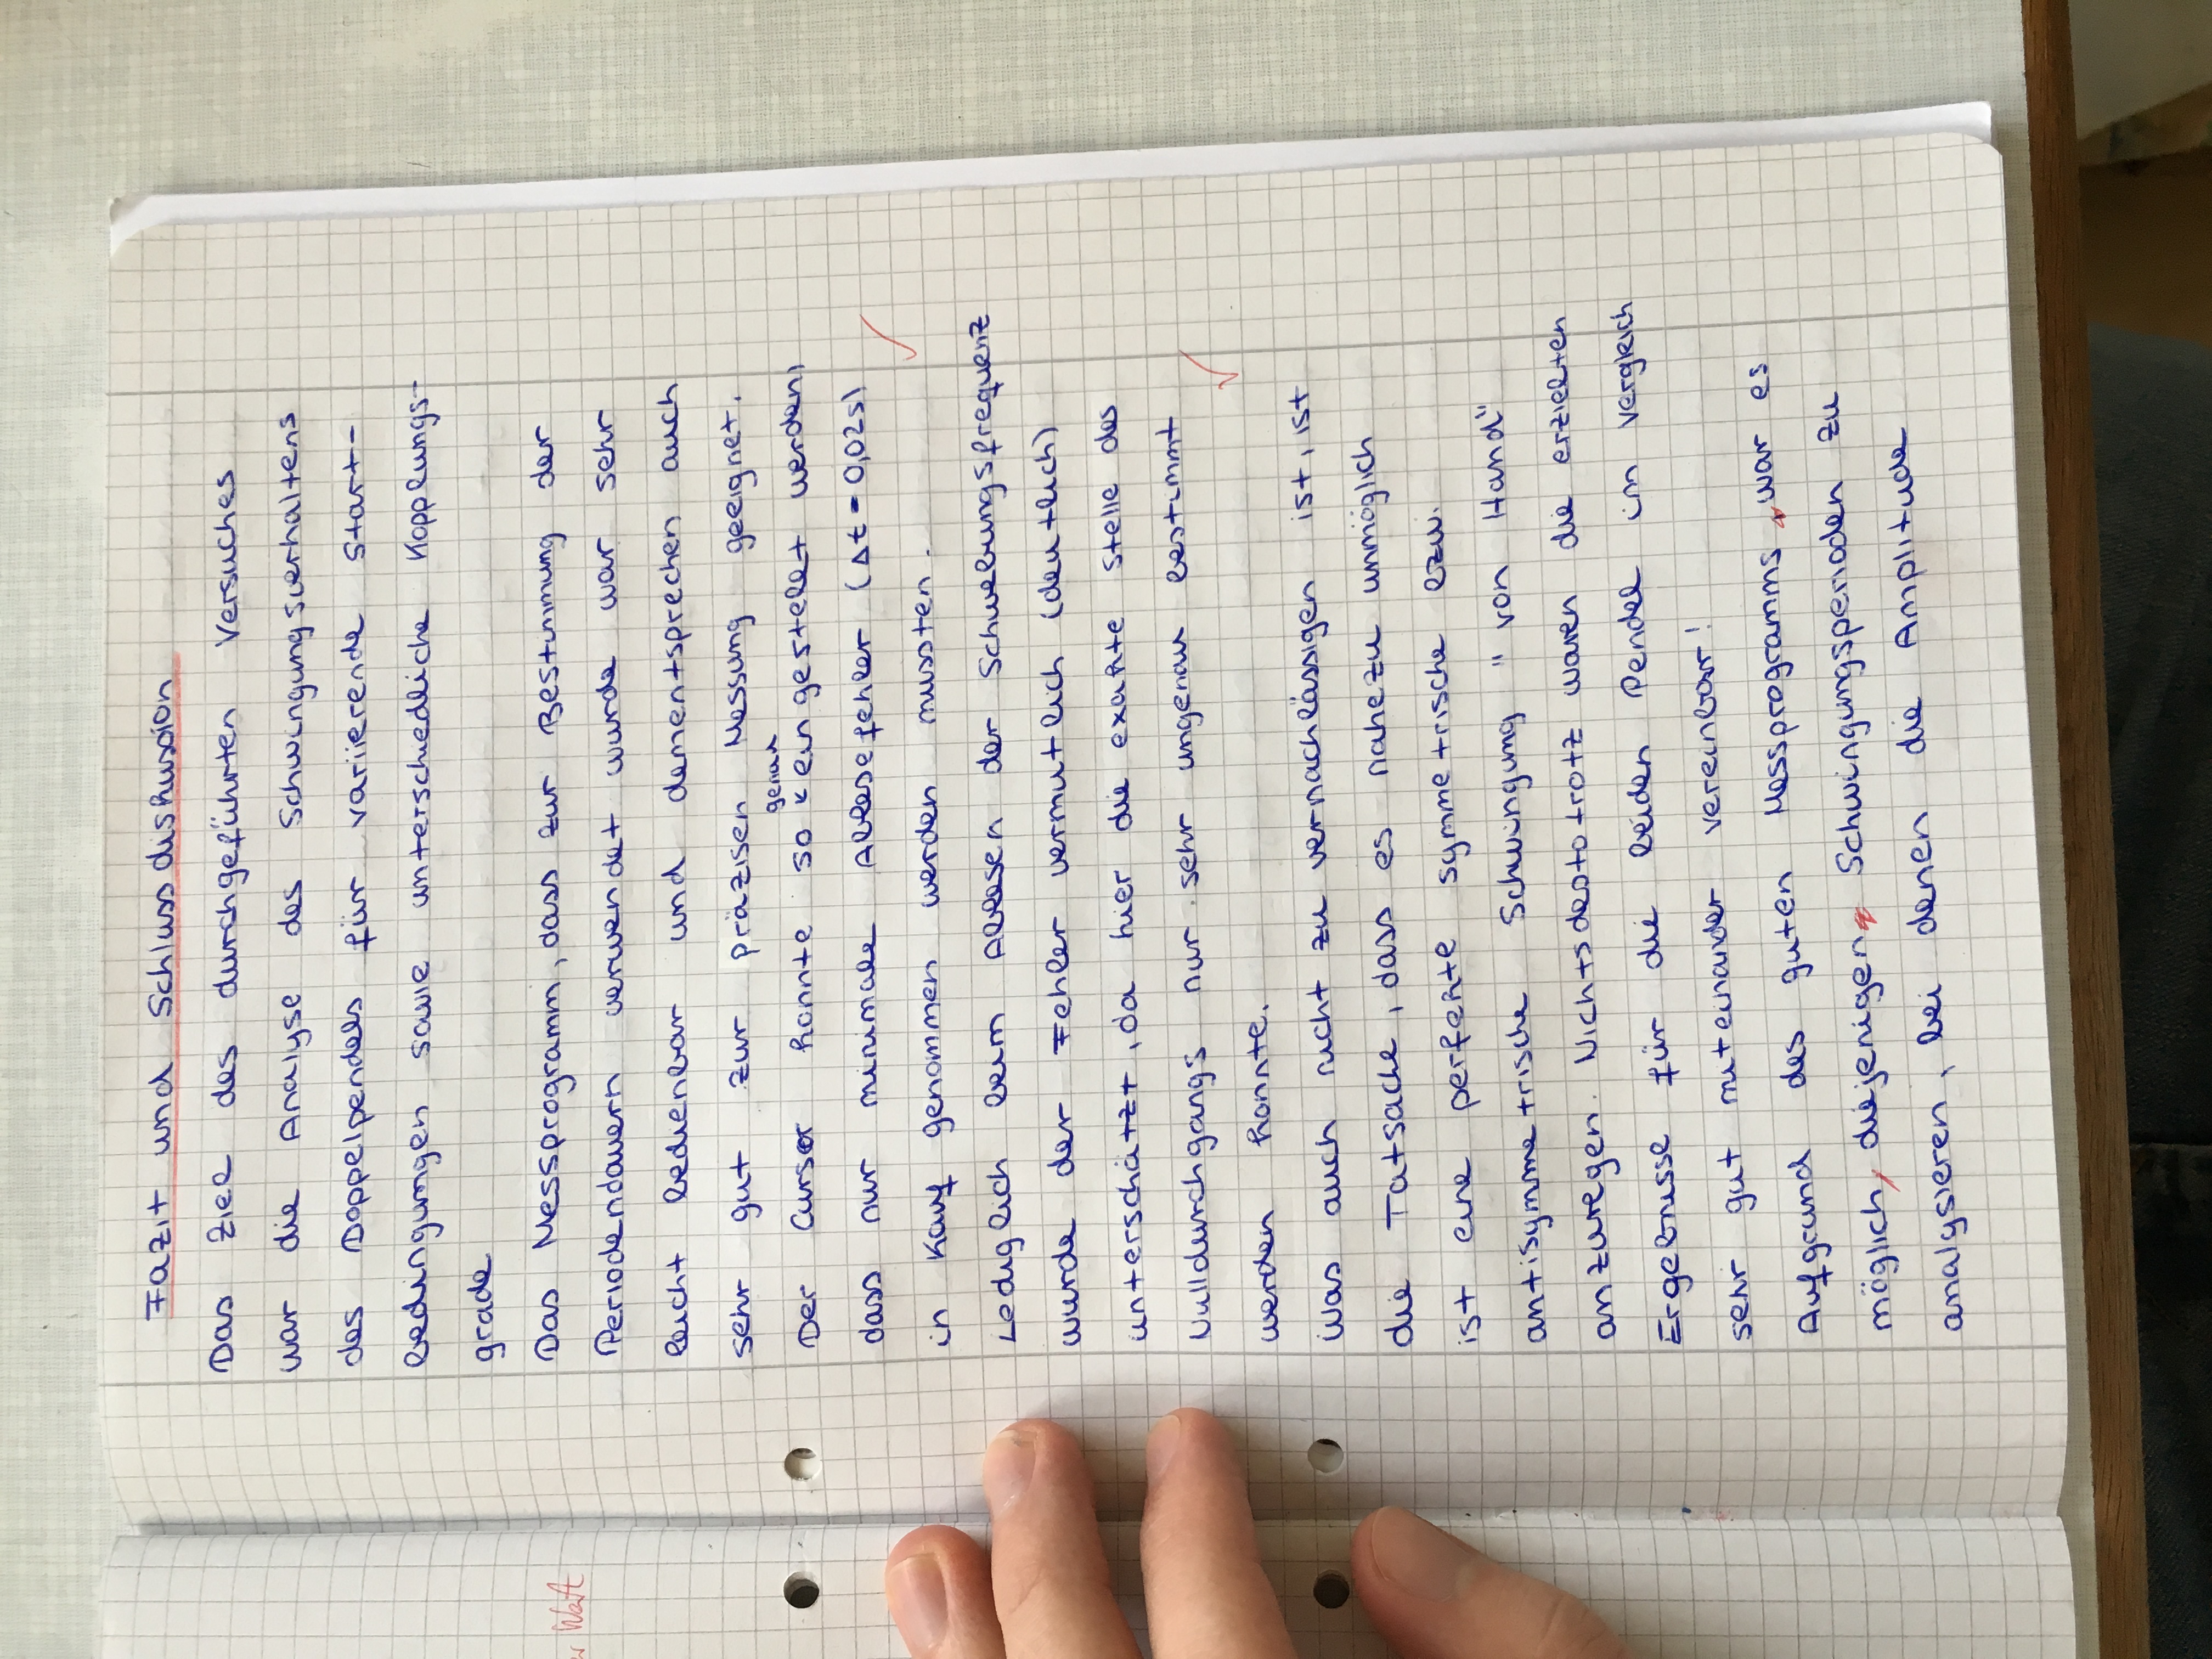 Fazit und Schlussdiskussion
Das Ziel des durchgeführten Versuches
war die Analyse des Schwingungsverhaltens
des Doppelpendels für variierende Start-
bedingungen sowie unterschiedliche Kopplungs-
grade
Das Messprogramm, dass zur Bestimmung der
Periodendauern verwendet wurde war sehr
leicht bedienbar und dementsprechen auch
sehr gut zur präzisen Messung geeignet.
Der Cursor konnte so genau eingestellt werden,
dass nur minimale Ablesefehler (Δt = 0,02s)
in Kauf genommen werden mussten.
Lediglich beim Ablesen der Schwebungsfrequenz
wurde der Fehler vermutlich (deutlich)
unterschätzt, da hier die exakte Stelle des
Nulldurchgangs nur sehr ungenau bestimmt
werden konnte.
Was auch nicht zu vernachlässigen ist, ist
die Tatsache, dass es nahezu unmöglich
ist eine perfekte symmetrische bzw.
antisymmetrische Schwingung "von Hand"
anzuregen. Nichtsdestotrotz waren die erzielten
Ergebnisse für die beiden Pendel im Vergleich
sehr gut miteinander vereinbar!
Aufgrund des guten Messprogramms war es
möglich, diejenigen Schwingungsperioden zu
analysieren, bei denen die Amplitude